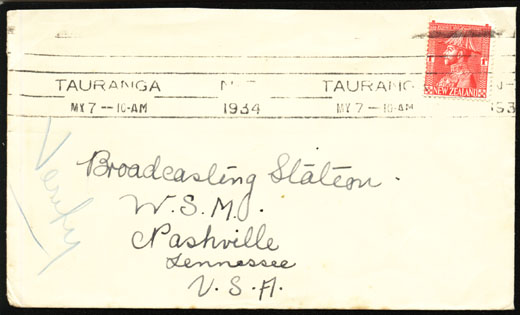 TAURANGA N-Z TAURANG N-
MY 7 - 10-AM 1934 MY 7 - 10-AM 193
1 1
NEW ZEALAND
Verify
Broadcasting Station.
W.S.M.
Nashville
Tennessee
U.S.A.